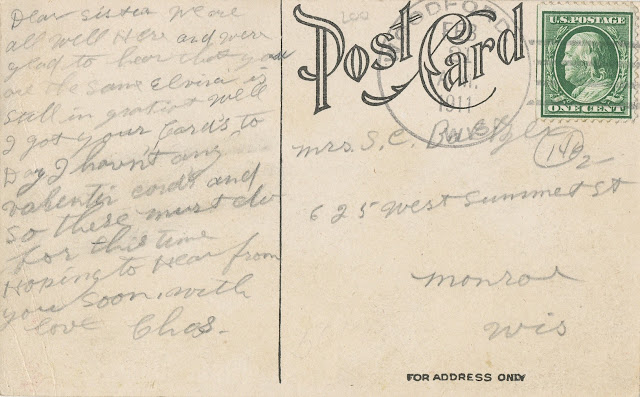 Dear Sister We are
all well Here and were
glad to hear that you
are the same Elvira is
still in
I got your Card's to
Day I haven't any
valentin cords and
so these must do
for this time
Hoping to Hear from
you soon. with
love Chas.
Post Card
WOODFORD
FEB
1911
WIS.
U.S. POSTAGE
ONE CENT
Mrs. S. C.
146 2
625 West Summet St
Monroe
Wis
FOR ADDRESS ONLY